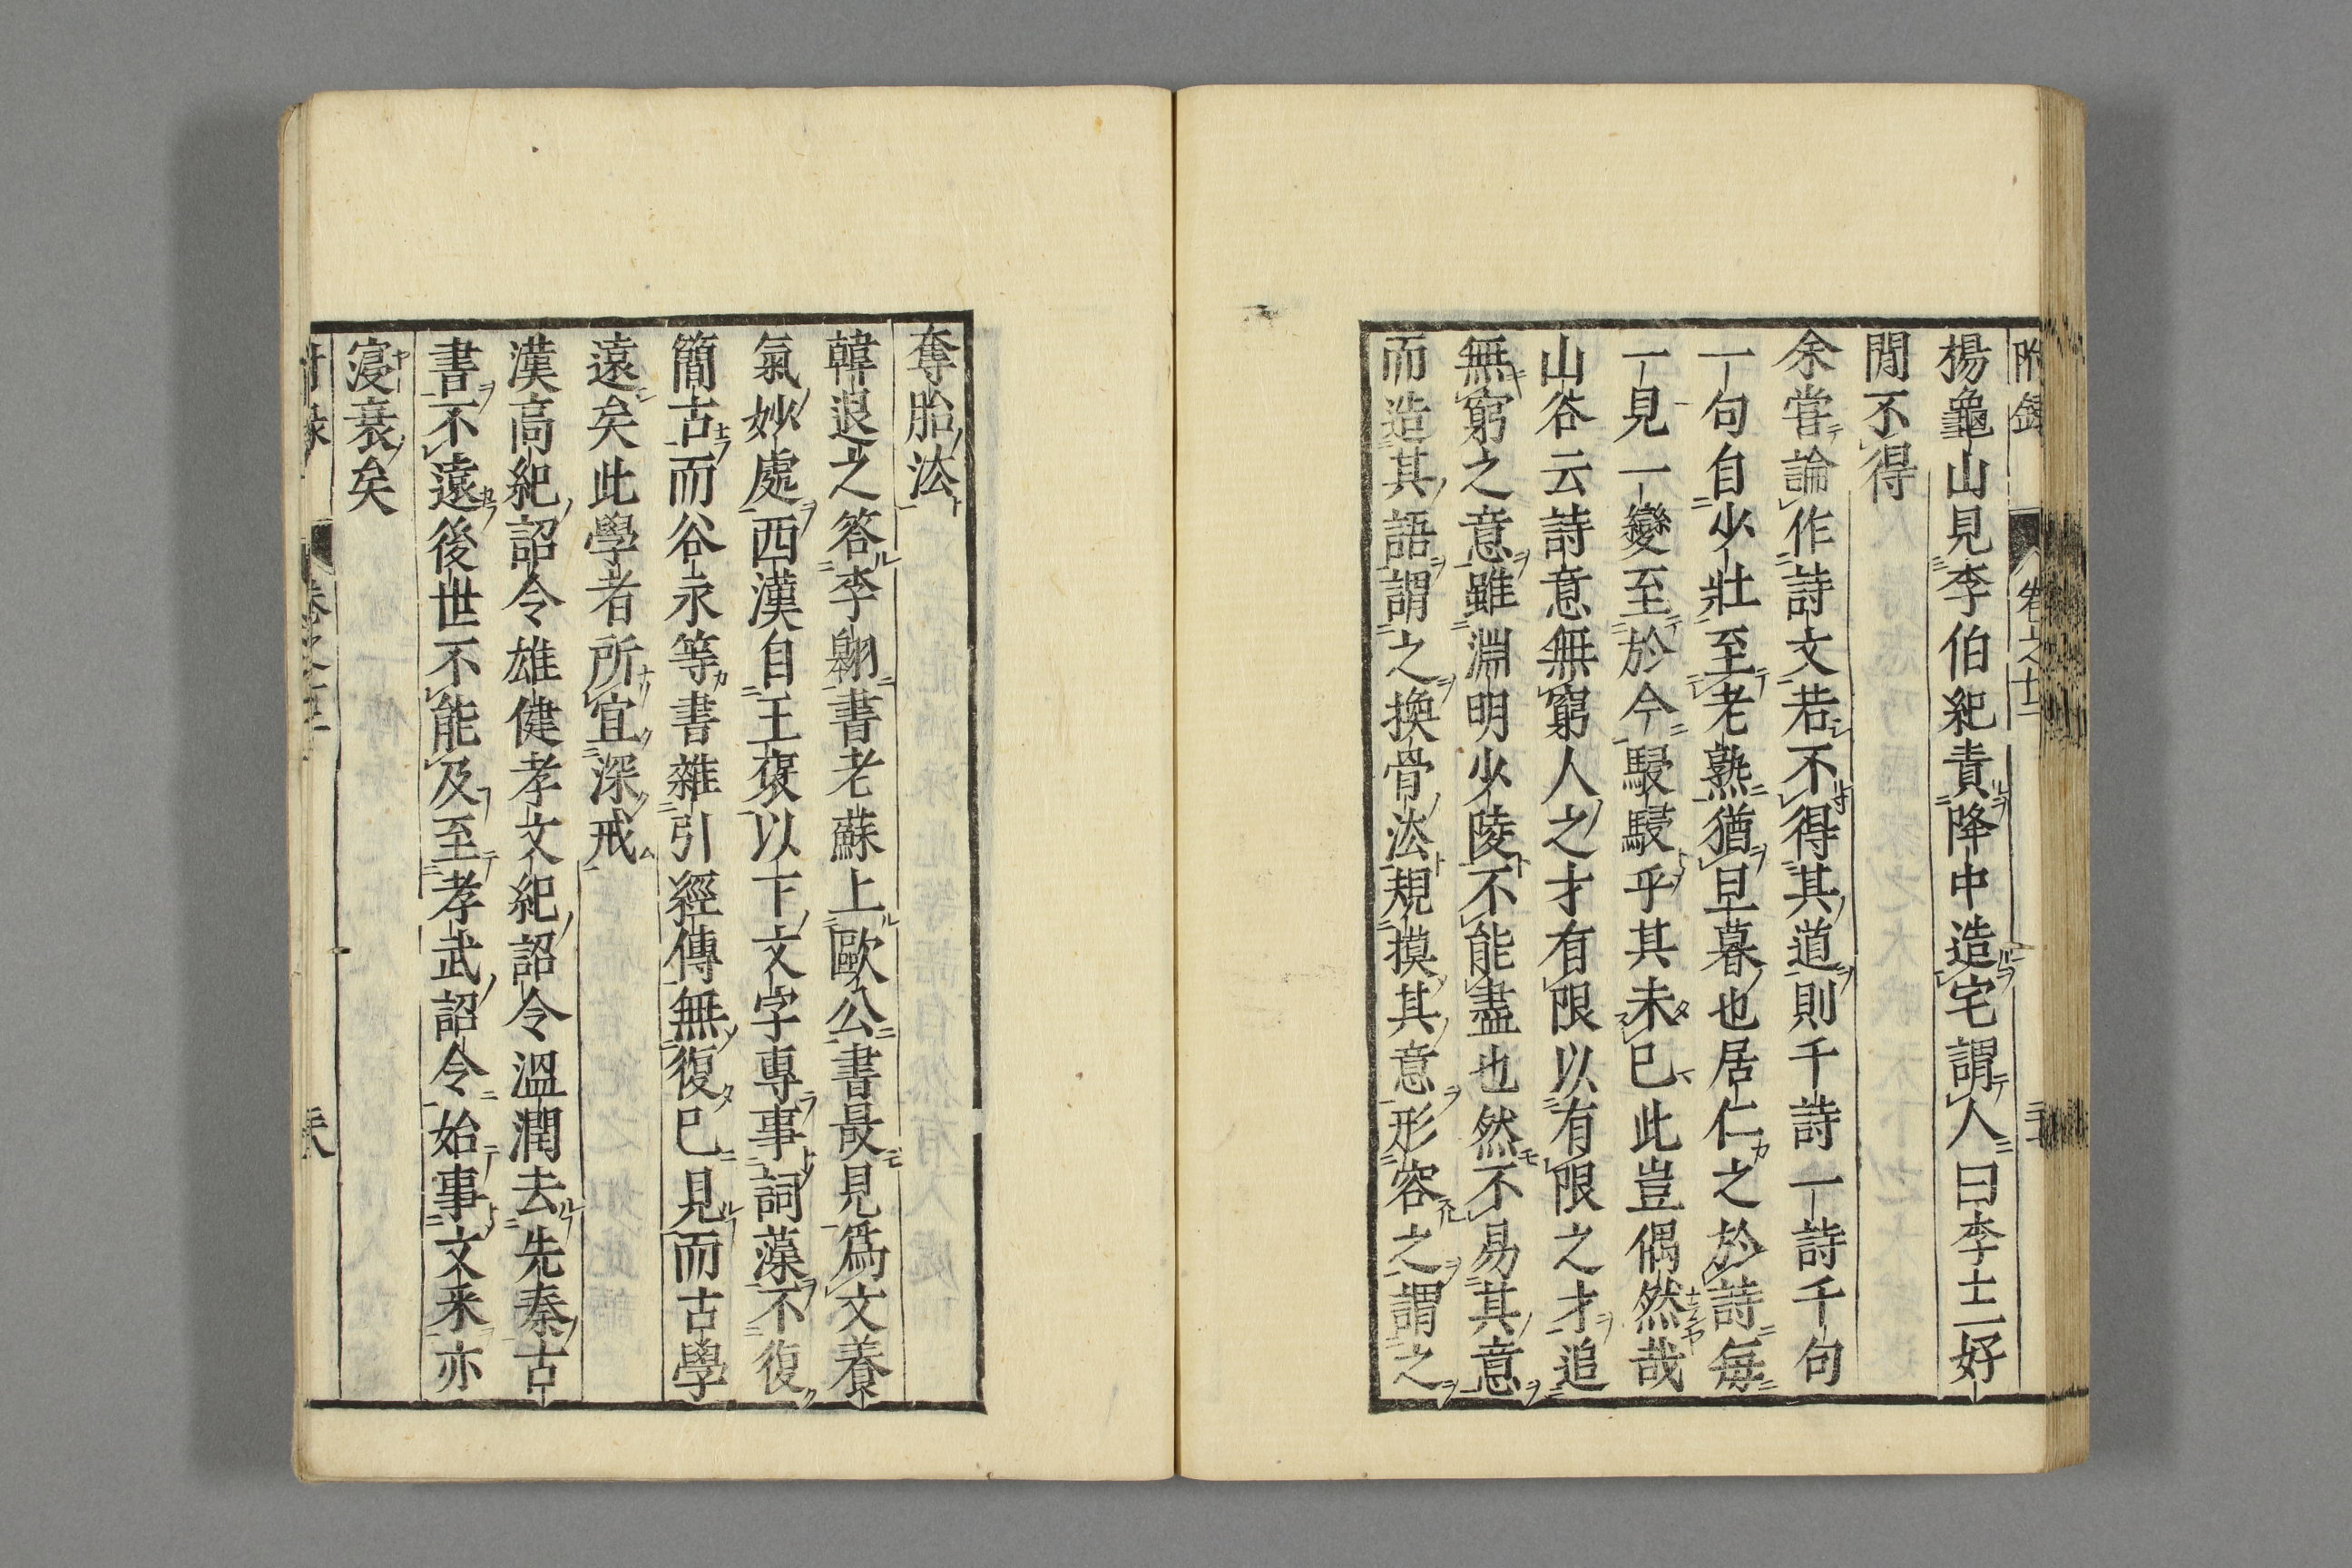 附錄 卷之十二
楊龜山見李伯紀責降中造宅謂人曰李士二好
閒不得
余嘗論作詩文若不得其道則千詩一詩千句
一句自少壯至老熟猶旦暮也居仁之於詩每
一見一變至於今駸駸乎其未已此豈偶然哉
山谷云詩意無窮人之才有限以有限之才追
無窮之意雖淵明少陵不能盡也然不易其意
而造其語謂之換骨法規摸其意形容之謂之
奪胎法
韓退之答李翺書老蘇上歐公書最見爲文養
氣妙處西漢自王褒以下文字專事詞藻不復
簡古而谷永等書雜引經傳無復已見而古學
遠矣此學者所宜深戒
漢高紀詔令雄健孝文紀詔令溫潤去先秦古
書不遠後世不能及至孝武詔令始事文采亦
寖衰矣